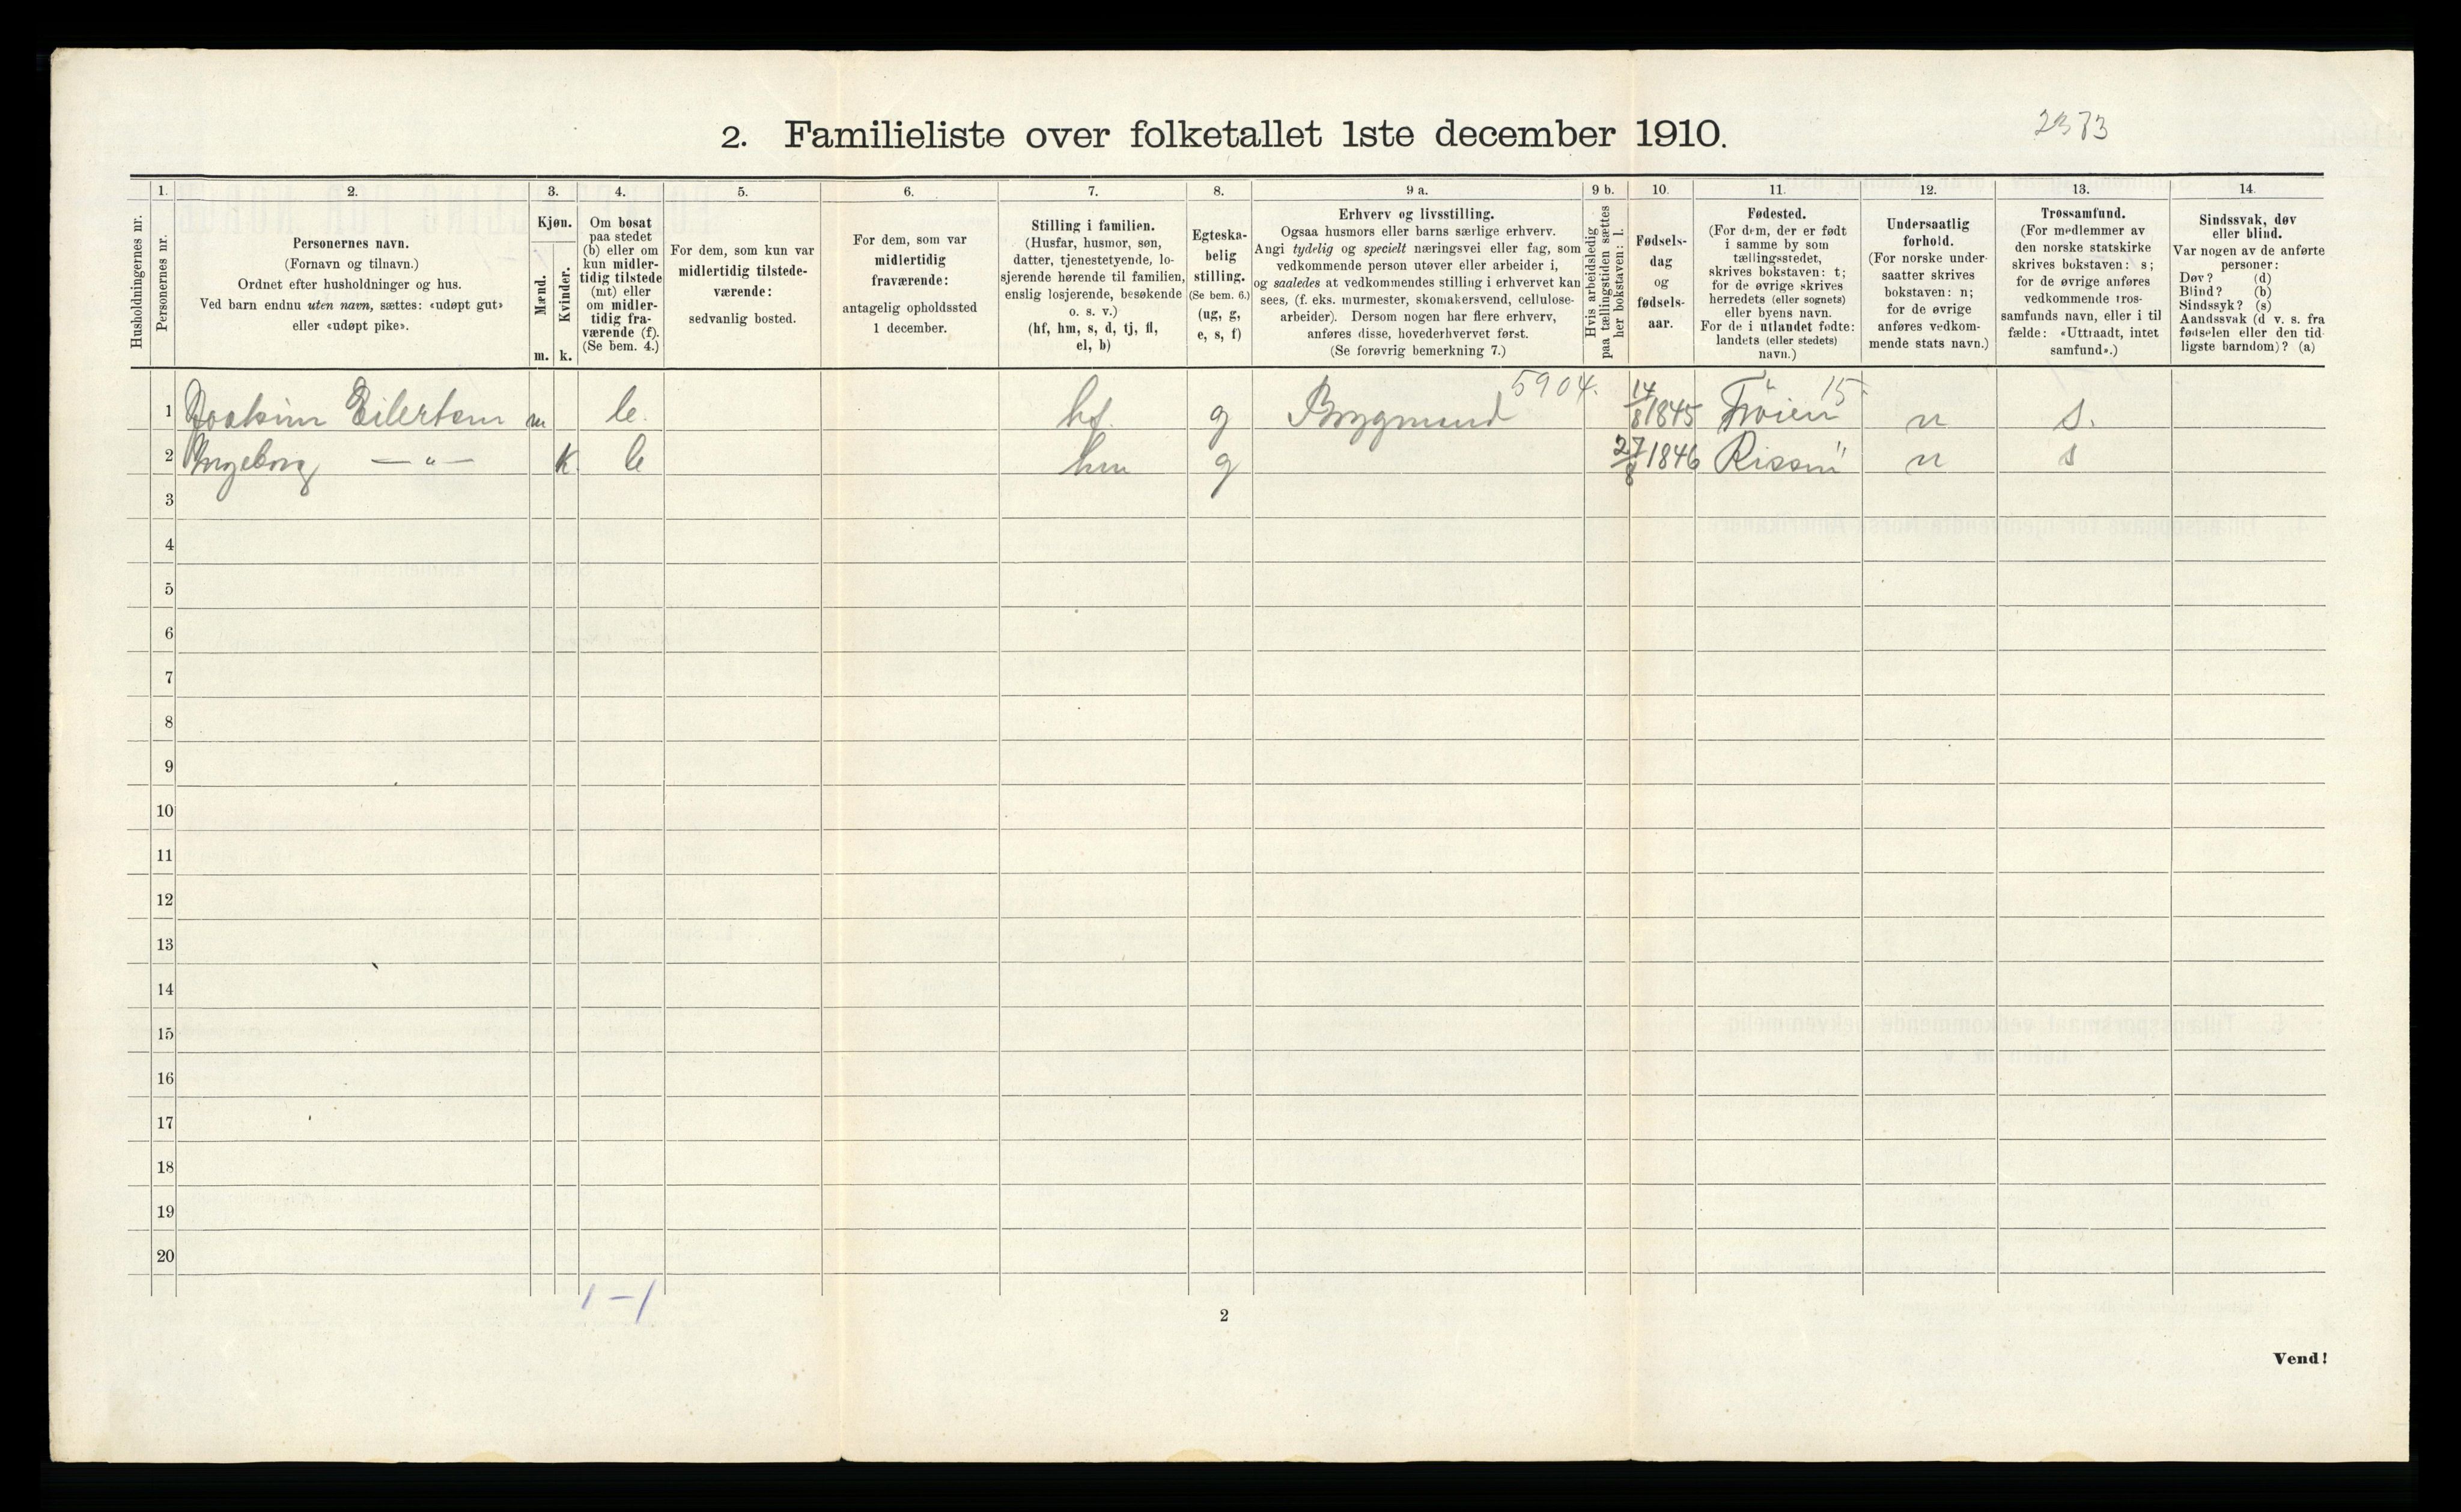 2. Familieliste over folketallet 1ste december 1910.
2373
1. 2. 3. 4. 5. 6. 7. 8. 9 a. 9 b. 10. 11. 12. 13. 14.
Husholdningernes nr.
Personernes nr.
Personernes navn.
(Fornavn og tilnavn.)
Ordnet efter husholdninger og hus.
Ved barn endnu uten navn, sættes: «udøpt gut»
eller «udøpt pike».
Kjøn.
Mænd.
Kvinder.
m. k.
Om bosat
paa stedet
(b) eller om
kun midler-
tidig tilstede
(mt) eller
om midler-
tidig fra-
værende (f).
(Se bem. 4.)
For dem, som kun var
midlertidig tilstede-
værende:
sedvanlig bosted.
For dem, som var
midlertidig
fraværende:
antagelig opholdssted
1 december.
Stilling i familien.
(Husfar, husmor, søn,
datter, tjenestetyende, lo-
sjerende hørende til familien,
enslig losjerende, besøkende
o. s. v.)
(hf, hm, s, d, tj, fl,
el, b)
Egteska-
belig
stilling.
(Se bem. 6.)
(ug, g,
e, s, f)
Erhverv og livsstilling.
Ogsaa husmors eller barns særlige erhverv.
Angi tydelig og specielt næringsvei eller fag, som
vedkommende person utøver eller arbeider i,
og saaledes at vedkommendes stilling i erhvervet kan
sees, (f. eks. murmester, skomakersvend, cellulose-
arbeider). Dersom nogen har flere erhverv,
anføres disse, hovederhvervet først.
(Se forøvrig bemerkning 7.)
Hvis arbeidsledig
paa tællingstiden sættes
her bokstaven: l.
Fødsels-
dag
og
fødsels-
aar.
Fødested.
(For dem, der er født
i samme by som
tællingsstedet,
skrives bokstaven: t;
for de øvrige skrives
herredets (eller sognets)
eller byens navn.
For de i utlandet fødte:
landets (eller stedets)
navn.)
Undersaatlig
forhold.
(For norske under-
saatter skrives
bokstaven: n;
for de øvrige
anføres vedkom-
mende stats navn.)
Trossamfund.
(For medlemmer av
den norske statskirke
skrives bokstaven: s;
for de øvrige anføres
vedkommende tros-
samfunds navn, eller i til
fælde: «Uttraadt, intet
samfund».)
Sindssvak, døv
eller blind.
Var nogen av de anførte
personer:
Døv? (d)
Blind? (b)
Sindssyk? (s)
Aandssvak (d v. s. fra
fødselen eller den tid-
ligste barndom)? (a)
5904. 15
1 Joakim Eilertsen m b. hf. g Brygmand 14/8 1845 Frøien n s.
2 Ingeborg — " — k b hm g 27/8 1846 Rissen " n s
3
4
5
6
7
8
9
10
11
12
13
14
15
16
17
18
19
20
1 – 1
2
Vend!